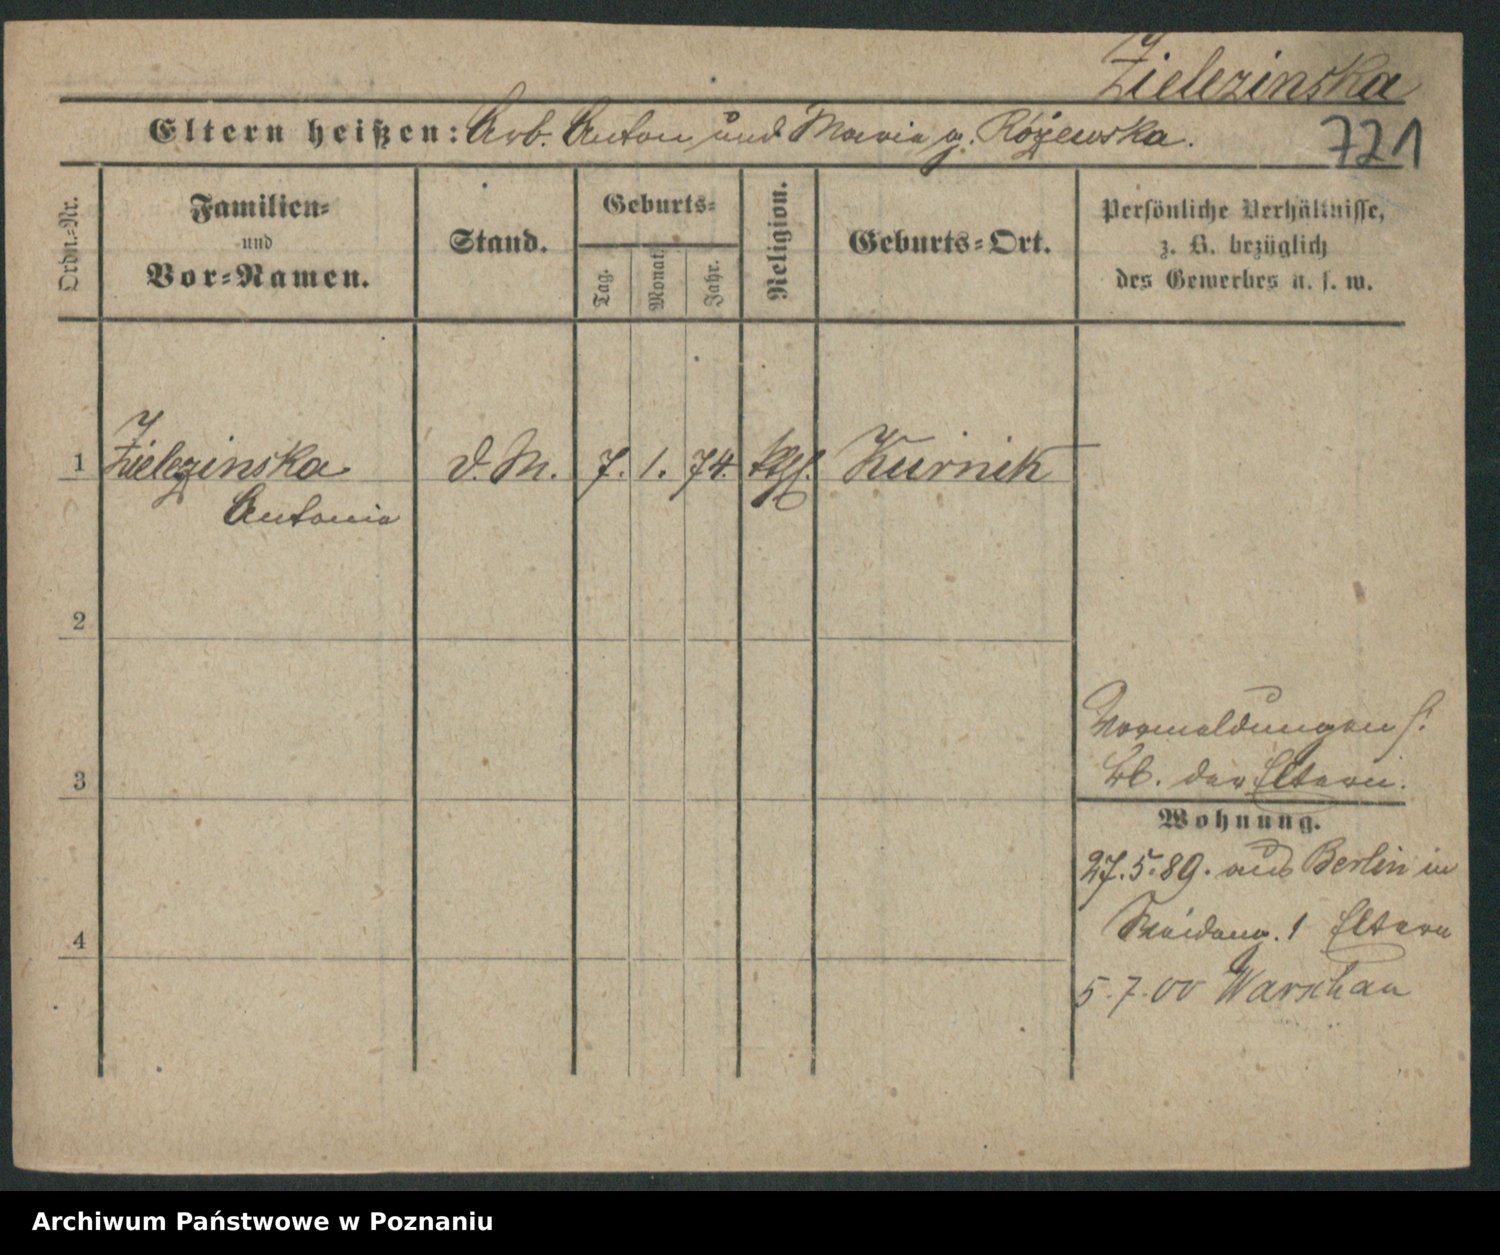 Zielezinska
Eltern heißen: Arb. Anton und Maria g. Różewska.
721
Ordn.-Nr.
Familien-
und
Vor-Namen.
Stand.
Geburts-
Tag.
Monat.
Jahr.
Religion.
Geburts-Ort.
Persönliche Verhältnisse,
z. B. bezüglich
des Gewerbes u. s. w.
1 Zielezinska d. M. 7. 1. 74. kth. Kurnik
Antonia
2
3
4
Vormeldungen s.
bb. der Eltern.
Wohnung.
27.5.89. aus Berlin in
1 Eltern
5.7.00 Warschau
Archiwum Państwowe w Poznaniu